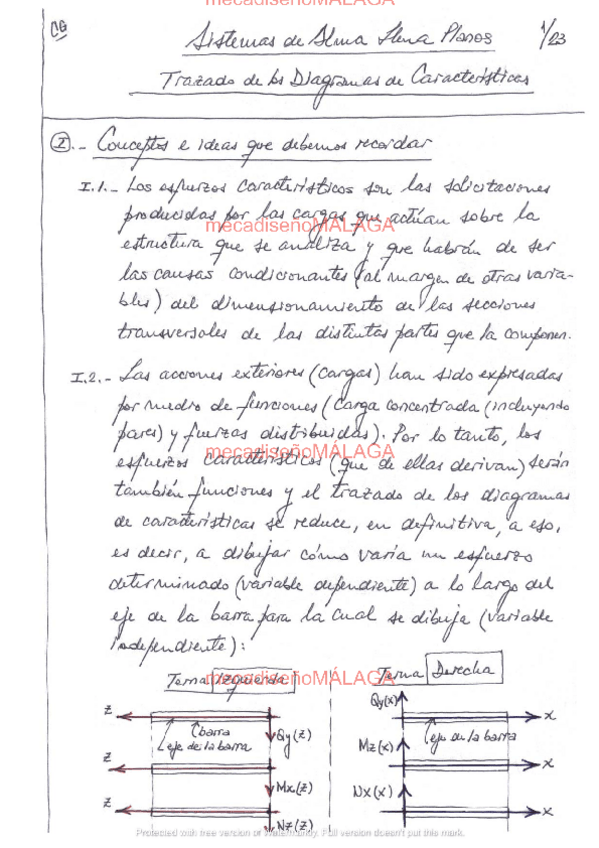 mecadiseñoMÁLAGA
Sistemas de Alma Llena Planos 1/23
Trazado de los Diagramas de Características
I.- Conceptos e ideas que debemos recordar
I.1.- Los esfuerzos característicos son las solicitaciones
producidas por las cargas que actúan sobre la
mecadiseñoMÁLAGA
estructura que se analiza y que habrán de ser
las causas condicionantes (al margen de otras varia-
bles) del dimensionamiento de las secciones
transversales de las distintas partes que la componen.
I.2.- Las acciones exteriores (cargas) han sido expresadas
por medio de funciones (carga concentrada (incluyendo
pares) y fuerzas distribuidas). Por lo tanto, los
mecadiseñoMÁLAGA
esfuerzos característicos (que de ellas derivan) serán
también funciones y el trazado de los diagramas
de características se reduce, en definitiva, a eso,
es decir, a dibujar cómo varía un esfuerzo
determinado (variable dependiente) a lo largo del
eje de la barra para la cual se dibuja (variable
independiente):
mecadiseñoMÁLAGA
Terna Izquierda Terna Derecha
z Qy(x) x
barra
eje de la barra Qy(z) eje de la barra
z Mz(x) x
Mx(z)
z Nx(x) x
Nz(z)
Protected with free version of Watermarkly. Full version doesn't put this mark.